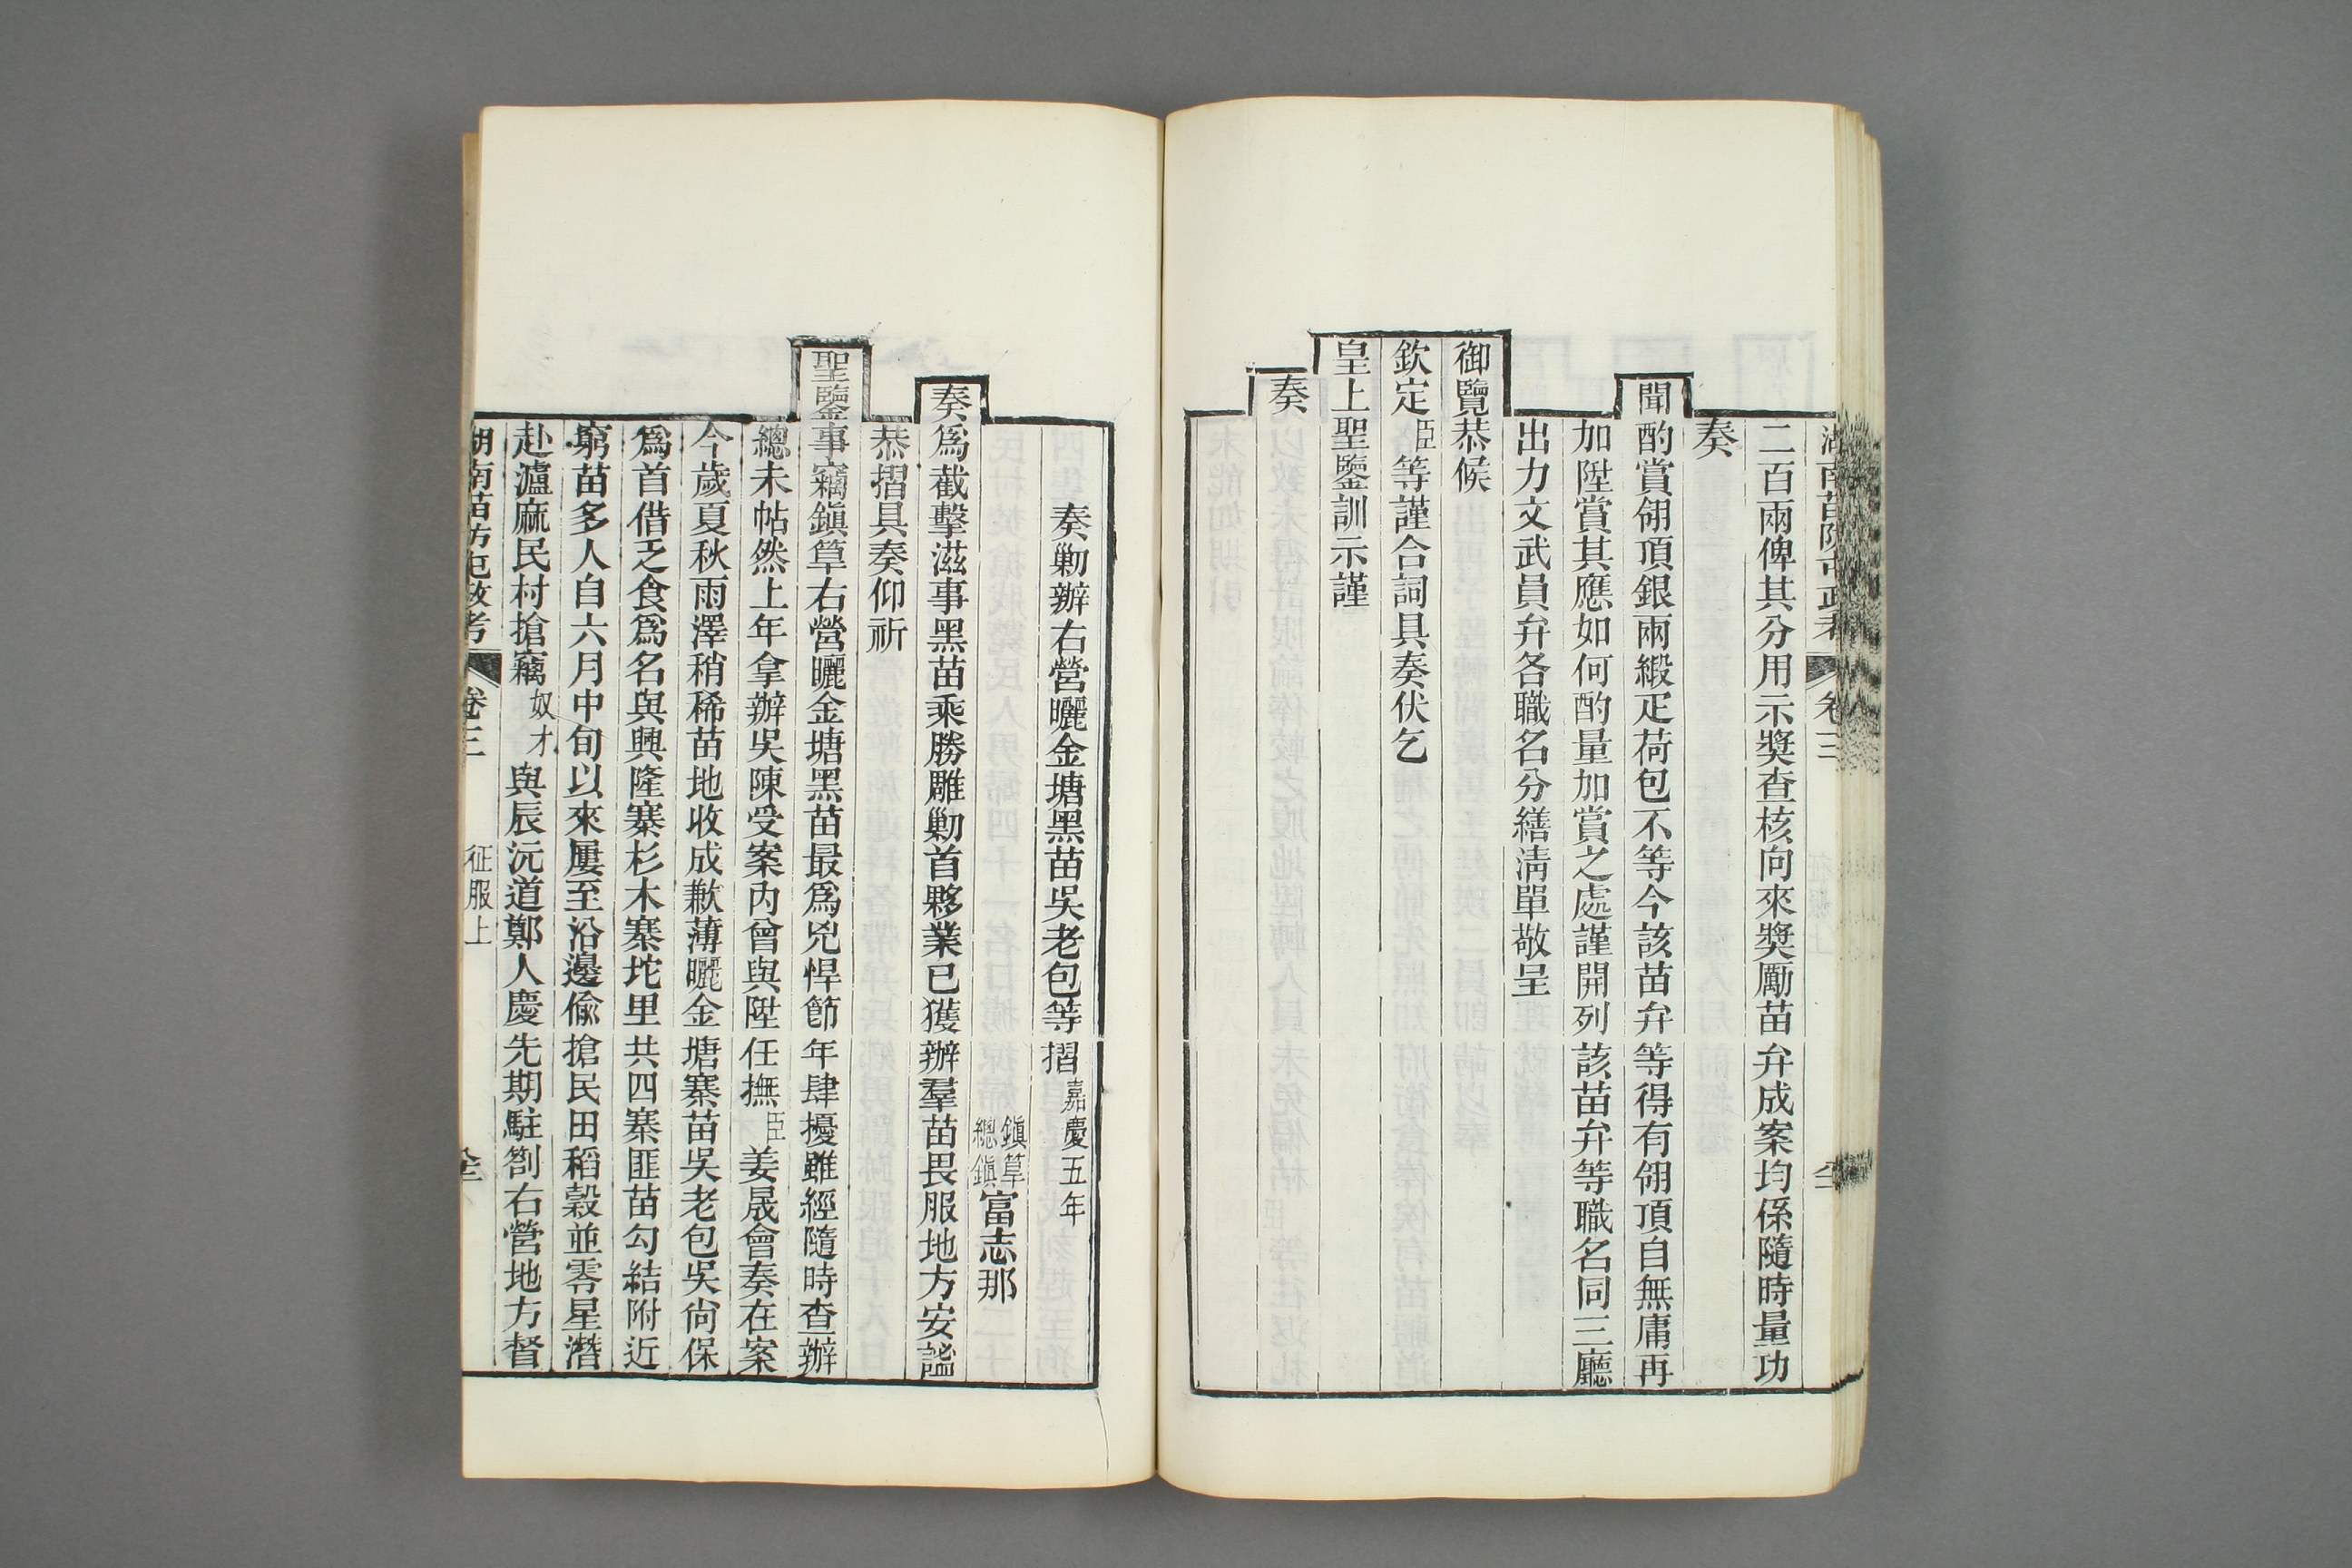 二百兩俾其分用示獎查核向來獎勵苗弁成案均係隨時量功
奏
聞酌賞翎頂銀兩緞疋荷包不等今該苗弁等得有翎頂自無庸再
加陞賞其應如何酌量加賞之處謹開列該苗弁等職名同三廳
出力文武員弁各職名分繕淸單敬呈
御覽恭候
欽定臣等謹合詞具奏伏乞
皇上聖鑒訓示謹
奏
奏勦辦右營曬金塘黑苗吳老包等摺嘉慶五年
鎮筸總鎮富志那
奏爲截擊滋事黑苗乘勝雕勦首夥業已獲辦羣苗畏服地方安謐
恭摺具奏仰祈
聖鑒事竊鎮筸右營曬金塘黑苗最爲兇悍節年肆擾雖經隨時查辦
總未帖然上年拿辦吳陳受案內曾與陞任撫臣姜晟會奏在案
今歲夏秋雨澤稍稀苗地收成歉薄曬金塘寨苗吳老包吳尙保
爲首借乏食爲名與興隆寨杉木寨坨里共四寨匪苗勾結附近
窮苗多人自六月中旬以來屢至沿邊偸搶民田稻穀並零星潛
赴瀘麻民村搶竊奴才與辰沅道鄭人慶先期駐劄右營地方督
湖南苗防屯政考 卷三 征服上